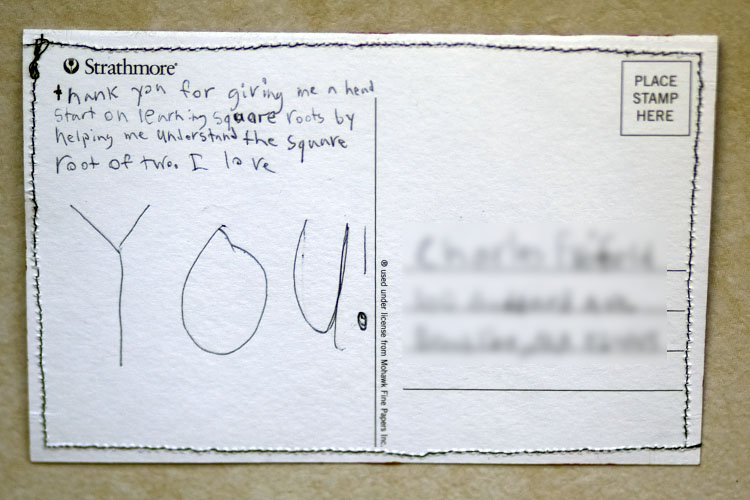 Strathmore®
thank you for giving me a head
start on learning square roots by
helping me understand the square
root of two. I love
YOU!
PLACE
STAMP
HERE
® used under license from Mohawk Fine Papers Inc.